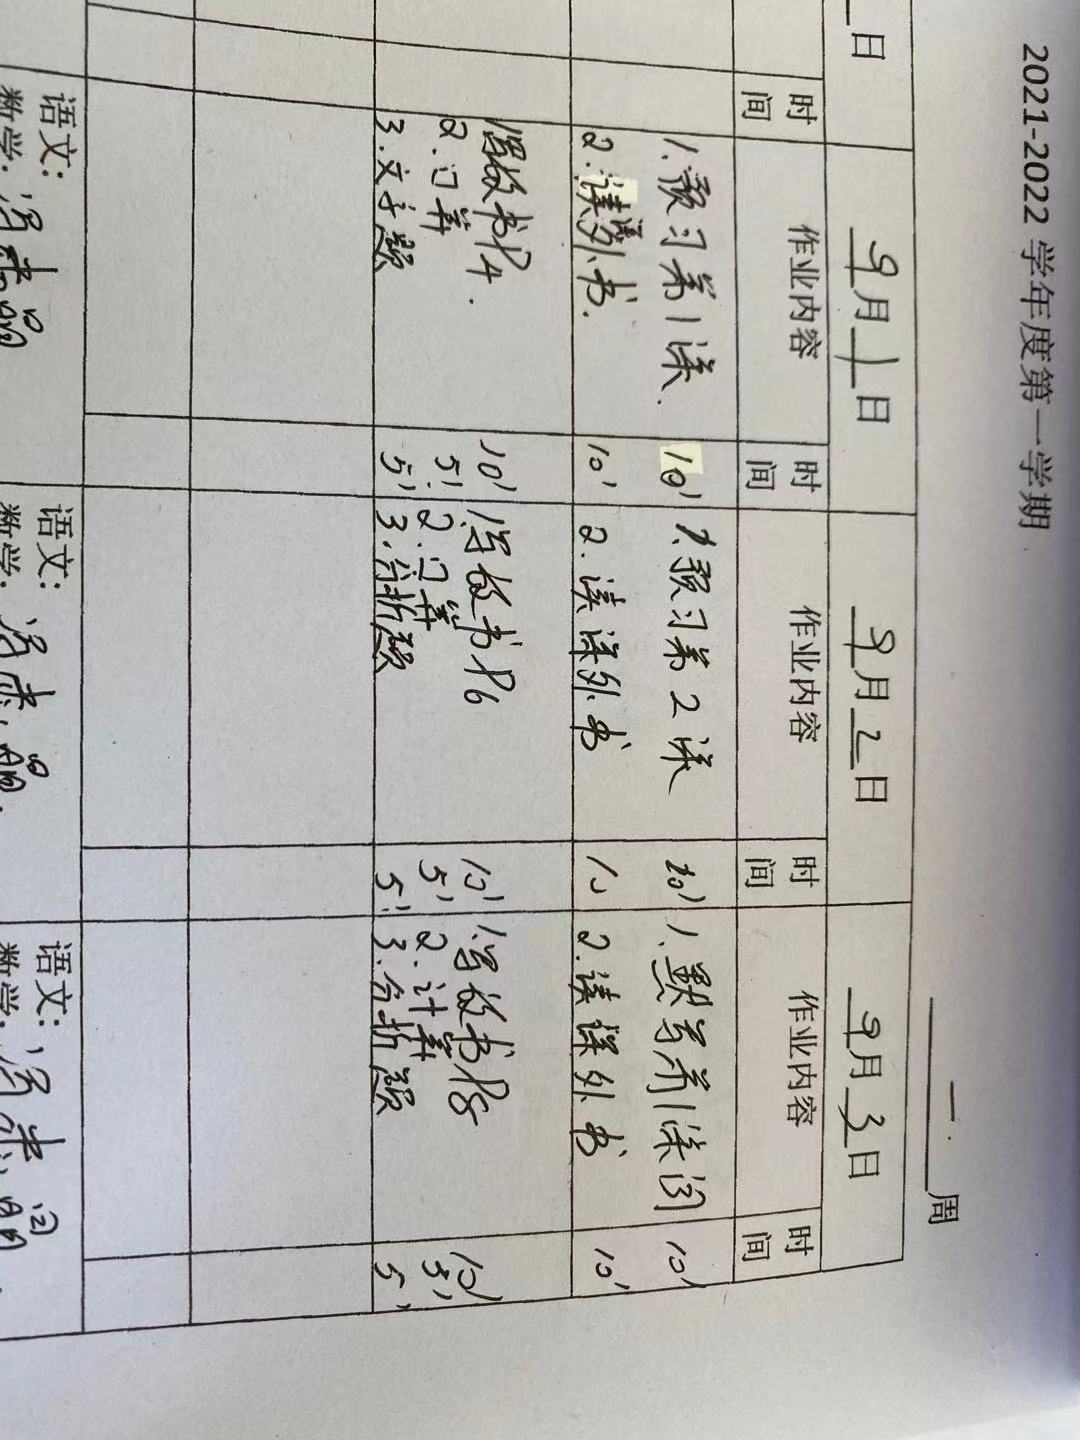 2021-2022 学年度第一学期
一. 周
日
9月1日
9月2日
9月3日
时间
作业内容
时间
作业内容
时间
作业内容
时间
1.预习第1课.
10'
1.预习第2课
10'
1.默写第1课词
10'
2.读课外书.
10'
2.读课外书
10
2.读课外书
10'
1.写校书P4.
10'
1.写校书P6
10'
1.写校书P8
10'
2.口算
5'
2.口算
5'
2.计算
5'
3.文字题
5'
3.分析题
5'
3.分析题
5'
语文:
语文:
语文:
数学:
数学:
数学: